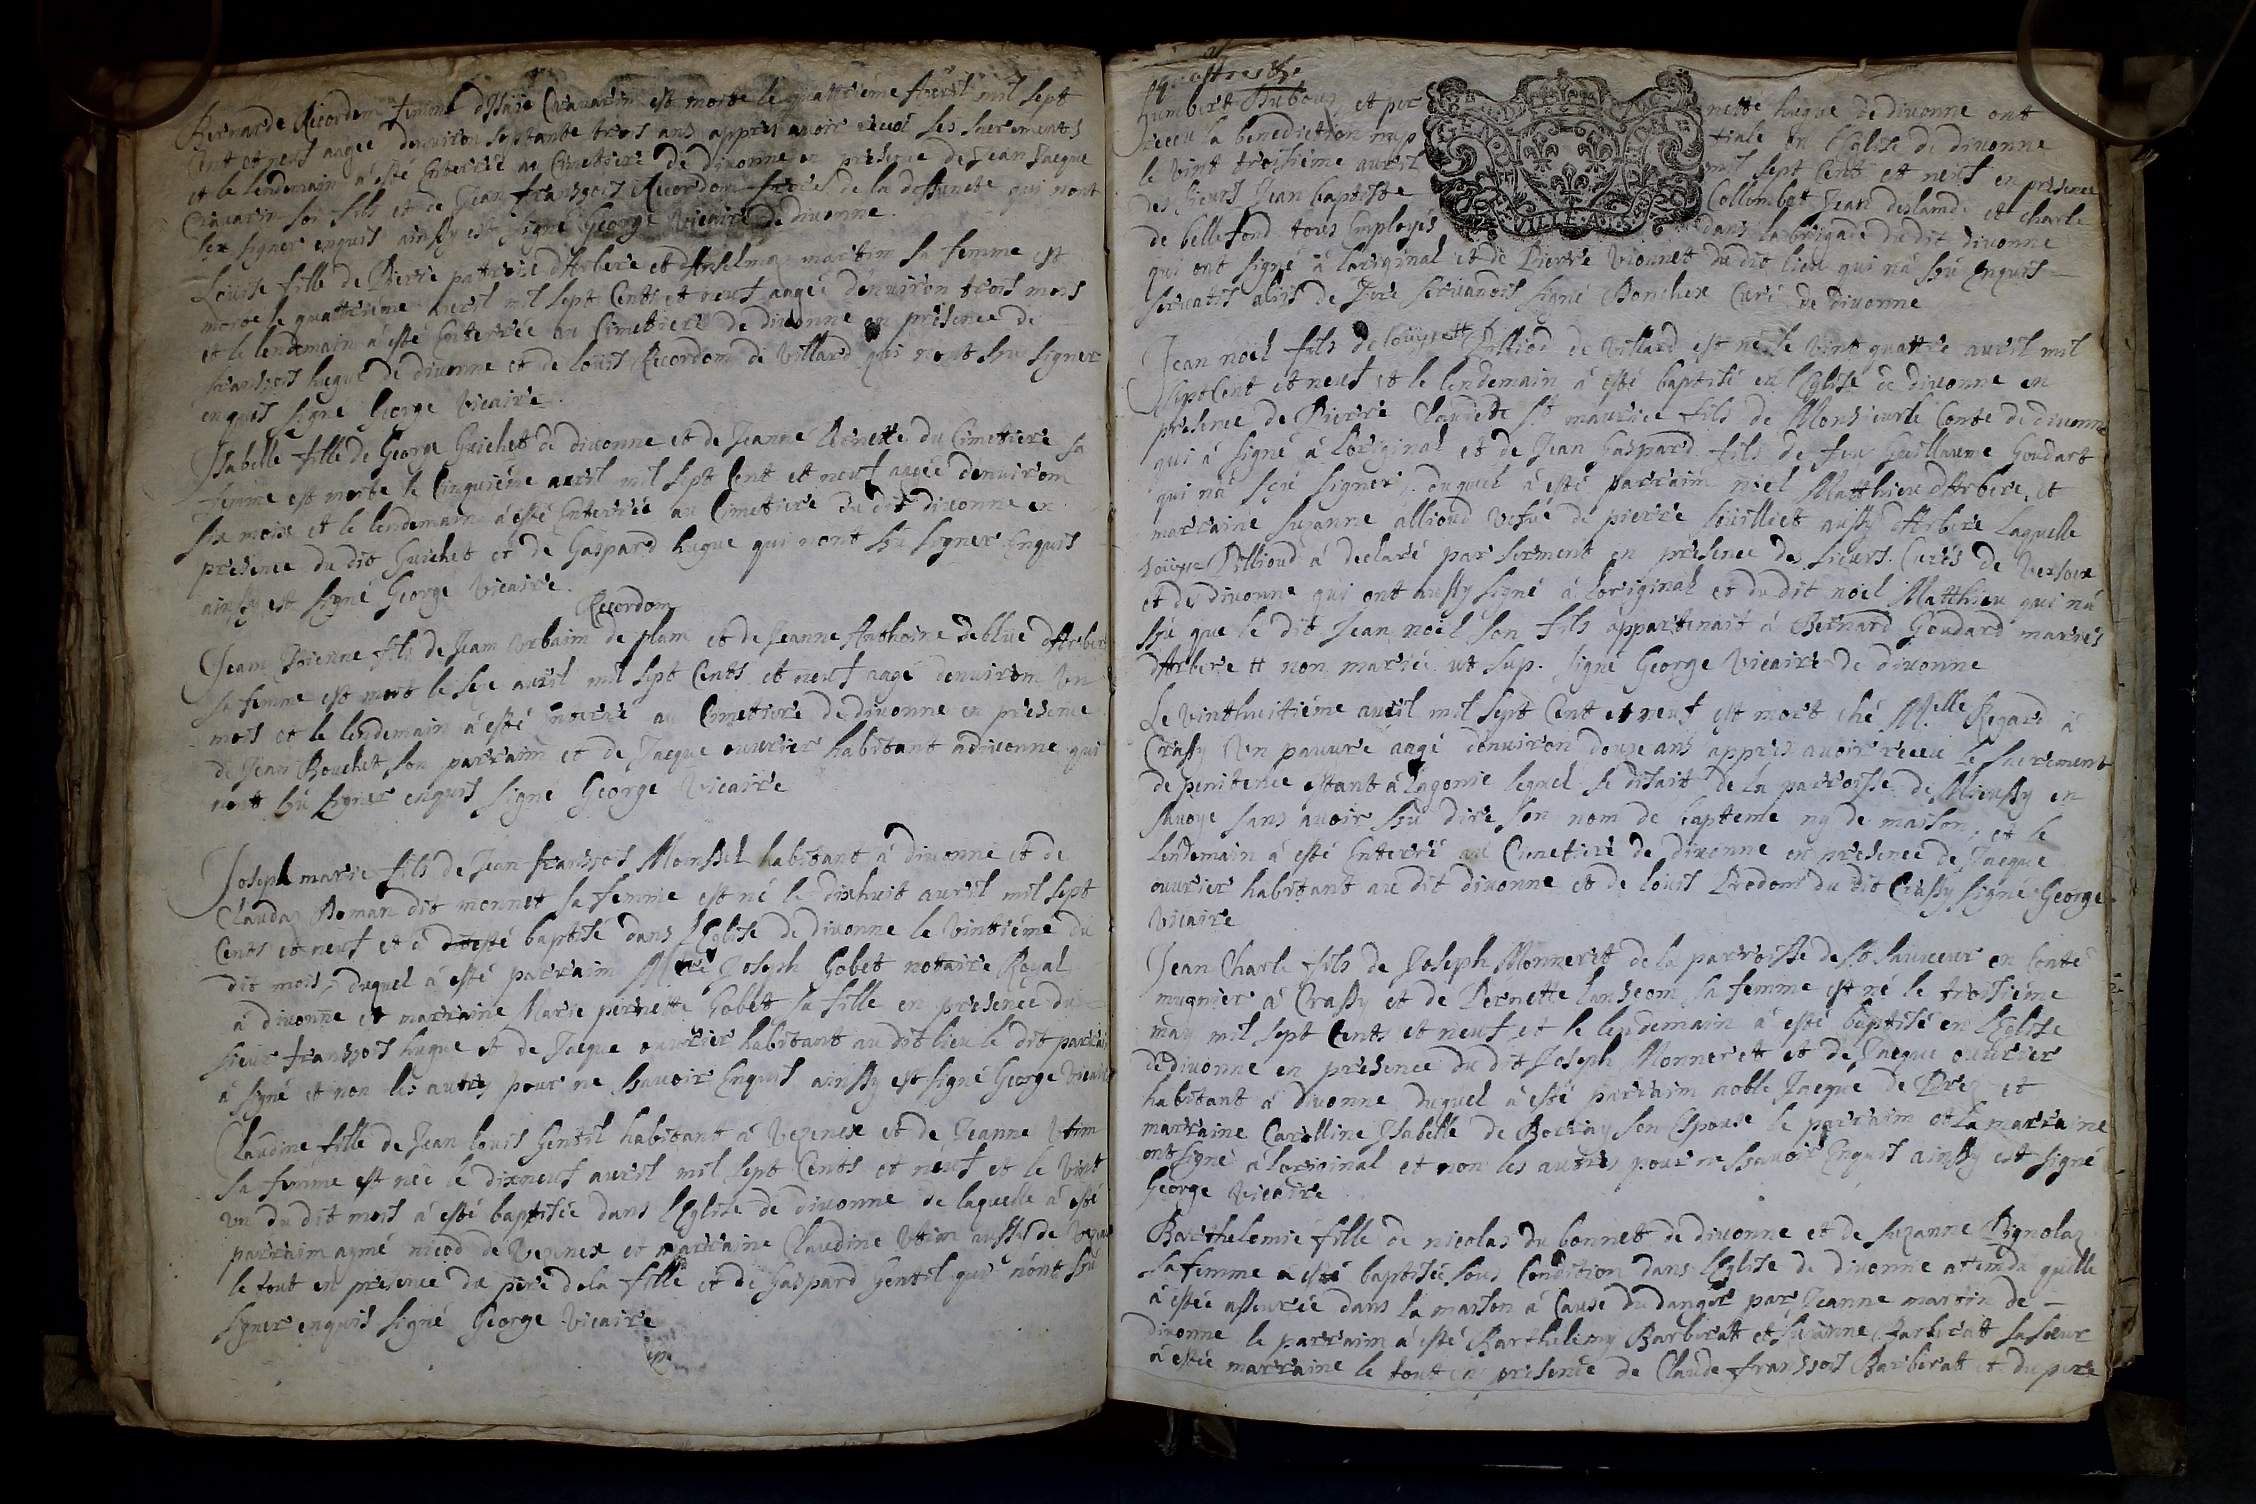 Bernarde Recordom femme d'Isaie Cravarin est morte le quattriéme Avril mil sept
Cent et neuf aagee denuiron septante trois ans appres auoir receu les sacrements
et le lendemain à esté Enterrée au Cimetiere de diuonne en presence de Jean Jacque
Crauarin son fils et de Jean fransçois Recordom frere de la deffuncte qui nont
sçu signer enquis ainsfy est signé George Vicaire de diuonne.
Loüise fille de Pierre patroie d'Arbere et d'Anselma martim sa femme est
morte le quattrieme auril mil sept Cents et neuf aagée d'enuiron trois mois
et le lendemain à esté Enterrée au Cimetiere de diuonne en présence de
fransçois hugue de diuonne et de loüis Recordom de Villard qui nont sçu signer
enquis signé George Vicaire.
Isabelle fille de George Guichet de diuonne et de Jeanne Pernette du Cimettiere sa
femme est morte le Cinquiéme auril mil sept Cent et neuf aagée denuirom
six mois et le lendemain à esté Enterrée au Cimetiere du dit diuonne en
presence du dit Guichet et de Gaspard hugue qui nont sçu signer Enquis
ainsfy est signé George Vicaire.
Recordom
Jeam Etienne fils de Jeam Vrbaim de plam et de Jeanne Anthoine deblüe d'Arbere
sa femme est mort le seze auril mil sept Cents et neuf aagé denuirom Vn
mois et le lendemain à esté enterré au Cimettiere de diuonne en presence
de Jean Bouchet son parraim et de Jacque ouurier habitant a diuonne qui
nont sçu signer enquis signé George Vicaire
Joseph marie fils de Jean fransçois Monssel habitant à diuonne et de
Claudaz Roman dit monnet sa femme est né le dixhuit auril mil sept
Cents et neuf et à esté baptisé dans l'Eglise de diuonne le Vinttiéme du
dit mois, duquel à esté parraim Mtre Joseph Gobet nottaire Royal
à diuonne et marraine Marie pernette Gobet sa fille en presence du
sieur fransçois hugue et de Jacque ouurier habitant au dit lieu le dit parrain
à signé et non les autres pour ne sçauoir Enquis ainsfy est signé George Vicaire
Claudine fille de Jean louis Gentil habitant à Vezenex et de Jeanne Vtim
sa femme est née le dixneuf auril mil sept Cents et neuf et le Vint
vn du dit mois à esté baptisée dans l'Eglise de diuonne de laquelle à esté
parraim aymé nicod de Vezenex et marraine Claudine Vtim aussy de Vezenex
le tout en presence du pere de la fille et de Gaspard Gentil qui nont sçu
signer enquis signé George Vicaire
humbert Dubouz et pernette hugue de diuonne ont
receu la benediction nuptiale en l'Eglise de diuonne
le Vint troisiéme auril mil sept Cent et neuf en presence
des sieurs Jean baptiste Collombet Jean deslande et charle
de bellefond tous Employés dans la brigade du dit diuonne
qui ont signé à l'original et de Pierre Vionnet du dit lieu qui na sçu Enquis
seruatis aliis de Jure seruandis signé Bonchex Curé de diuonne
Jean noël fils de Loüyse Pilliod de Villard est né le Vint quattre auril mil
sept Cent et neuf et le lendemain à esté baptisé en l'Eglise de diuonne en
presence de Pierre Claude de St. maurice fils de Monsieur le Conte de diuonne
qui à signé à l'original et de Jean Gaspard fils de feu Guillaume Goudart
qui na sçeu signer, duquel à esté parraim noël Matthieu d'Arbere, et
marraine Suzanne allioud vefue de pierre loüilliet aussy d'Arbere Laquelle
Loüyse Pillioud à declaré par serment en presence des sieurs Curés de Versoix
et de diuonne qui ont aussy signé à l'original et du dit noël Matthieu qui na
sçu que le dit Jean noël son fils appartenait à Bernard Goudard mariés
d'Arbere et non mariée ut sup. signé George Vicaire de diuonne
Le Vinthuitiéme auril mil sept Cent et neuf est mort ché Melle Regard à
Crassy Vn pauure aagé denuiron douze ans appres auoir receu le sacrement
de penitence estant à lagonie lequel se disait de la parroisse de Mieussy en
sauoye sans auoir sçu dire son nom de bapteme ny de maison, et le
lendemain à esté Enterré au Cimetiere de diuonne en presence de Jacque
ouurier habitant au dit diuonne et de loüis Predom du dit Crassy signé George
Vicaire
Jean Charle fils de Joseph Monneret de la parroisse de St. Sauueur en Conté
mugnier à Crassy et de Pernette lansçom sa femme est né le troisiéme
may mil sept Cents et neuf et le lendemain à esté baptisé en l'Eglise
de diuonne en presence du dit Joseph Monnerett et de Jacque ouurier
habitant à diuonne duquel à esté parraim noble Jacque de Prez et
marraine Carolline Isabelle de Borray son Epouse le parraim et la marraine
ont signé à l'original et non les autres pour ne sçauoir Enquis ainsfy est signé
George Vicaire
Barthelemie fille de nicolas du bonnet de diuonne et de suzanne Pignolaz
sa femme à esté baptisée sous Condition dans l'Eglise de diuonne attendu quelle
à estée asseurée dans la maison à Cause du danger par Jeanne martin de
diuonne le parraim à esté Barthelemy Barberatt et Suzanne Barberatt sa sœur
à estée marraine le tout en presence de Claude fransçois Barberatt et du pere